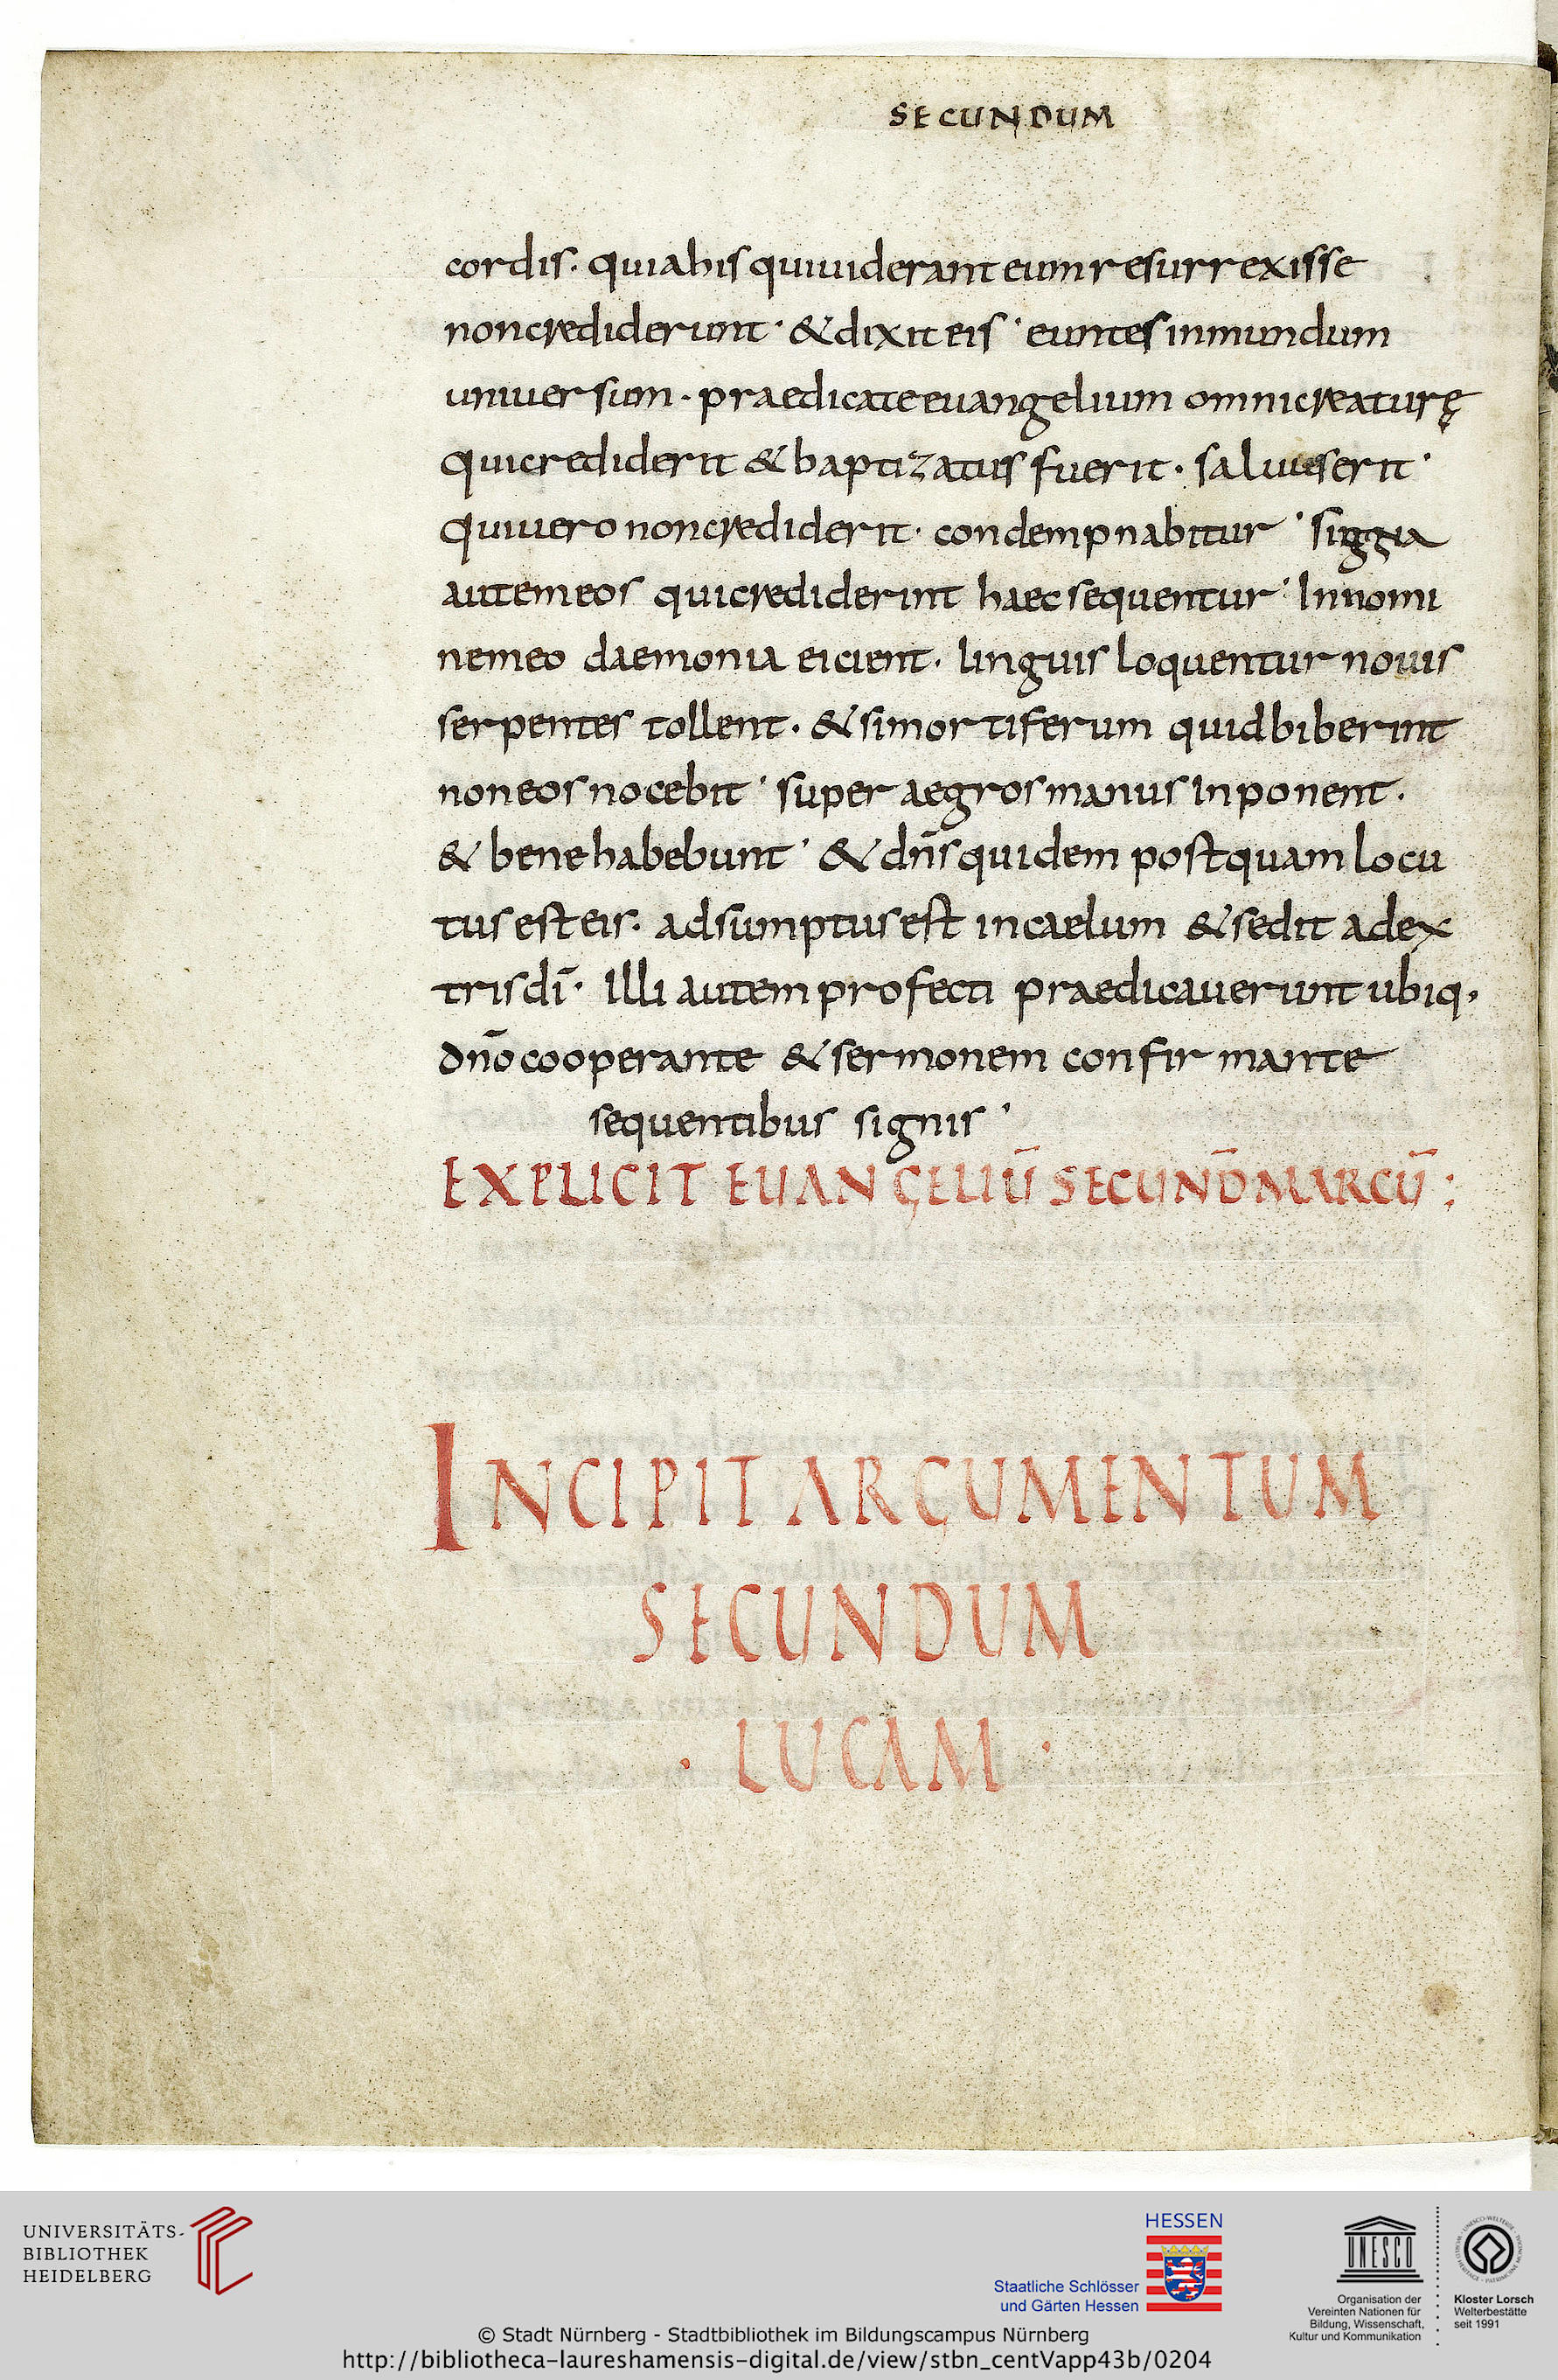 SECUNDUM
cordis. quia his qui uiderant eum resurrexisse
non crediderunt. & dixit eis. euntes in mundum
uniuersum. praedicate euangelium omni creaturę
Qui crediderit & baptizatus fuerit. saluus erit.
Qui uero non crediderit. condempnabitur. singga
autem eos qui crediderint haec sequentur. In nomi
ne meo daemonia eicient. linguis loquentur nouis
serpentes tollent. & si mortiferum quid biberint
non eos nocebit. super aegros manus inponent.
& bene habebunt. & dn̄s quidem postquam locu
tus est eis. adsumptus est in caelum & sedit a dex
tris dī. Illi autem profecti praedicauerunt ubiq,
dn̄o cooperante & sermonem confirmante
sequentibus signis.
EXPLICIT EUANGELIŪ SECUND̄ MARCŪ:
INCIPIT ARGUMENTUM
SECUNDUM
· LUCAM ·
UNIVERSITÄTS-
BIBLIOTHEK
HEIDELBERG
HESSEN
Staatliche Schlösser
und Gärten Hessen
UNESCO
Organisation der
Vereinten Nationen für
Bildung, Wissenschaft,
Kultur und Kommunikation
Kloster Lorsch
Welterbestätte
seit 1991
© Stadt Nürnberg - Stadtbibliothek im Bildungscampus Nürnberg
http://bibliotheca-laureshamensis-digital.de/view/stbn_centVapp43b/0204